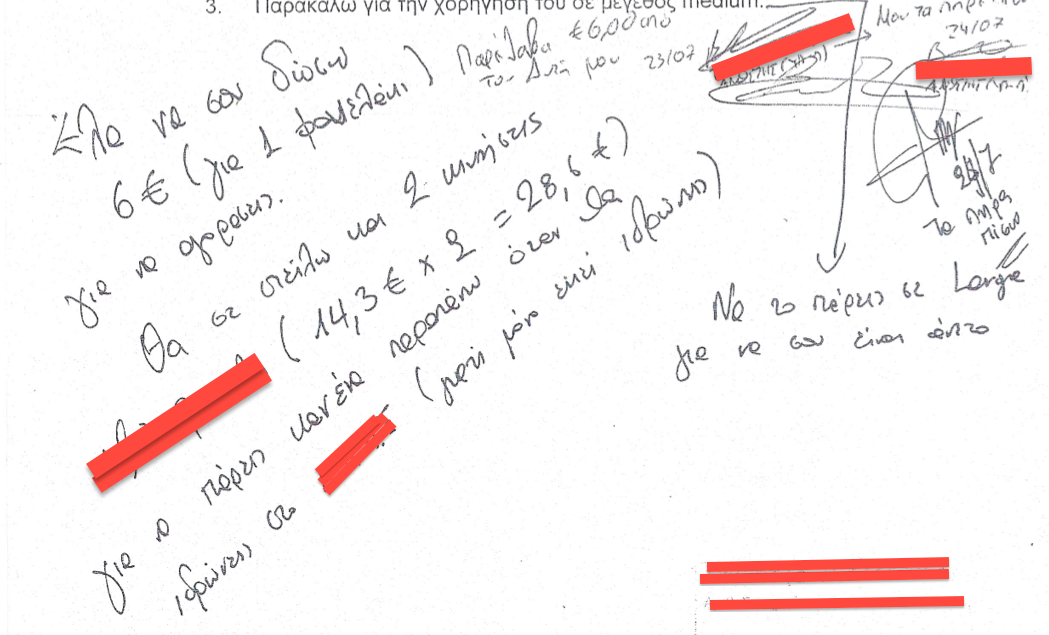 3. Παρακαλώ για την χορήγηση του σε μέγεθος medium.
Παρέλαβα €6,00 από
τον Διτή μου 23/07
Μου τα πήρε
24/07
Έλα να σου δώσω
6 € (για 1 φανελάκι)
για να αγοράσεις.
Θα σε στείλω και 2 κινήσεις
(14,3 € x 2 = 28,6 €)
για να πάρεις κανένα παραπάνω όταν θα
ιδρώνεις στο (γιατί μόνο εκεί ιδρώνεις)
24/7
Τα πήρα
πίσω
Να το πάρεις σε Large
για να σου είναι άνετο